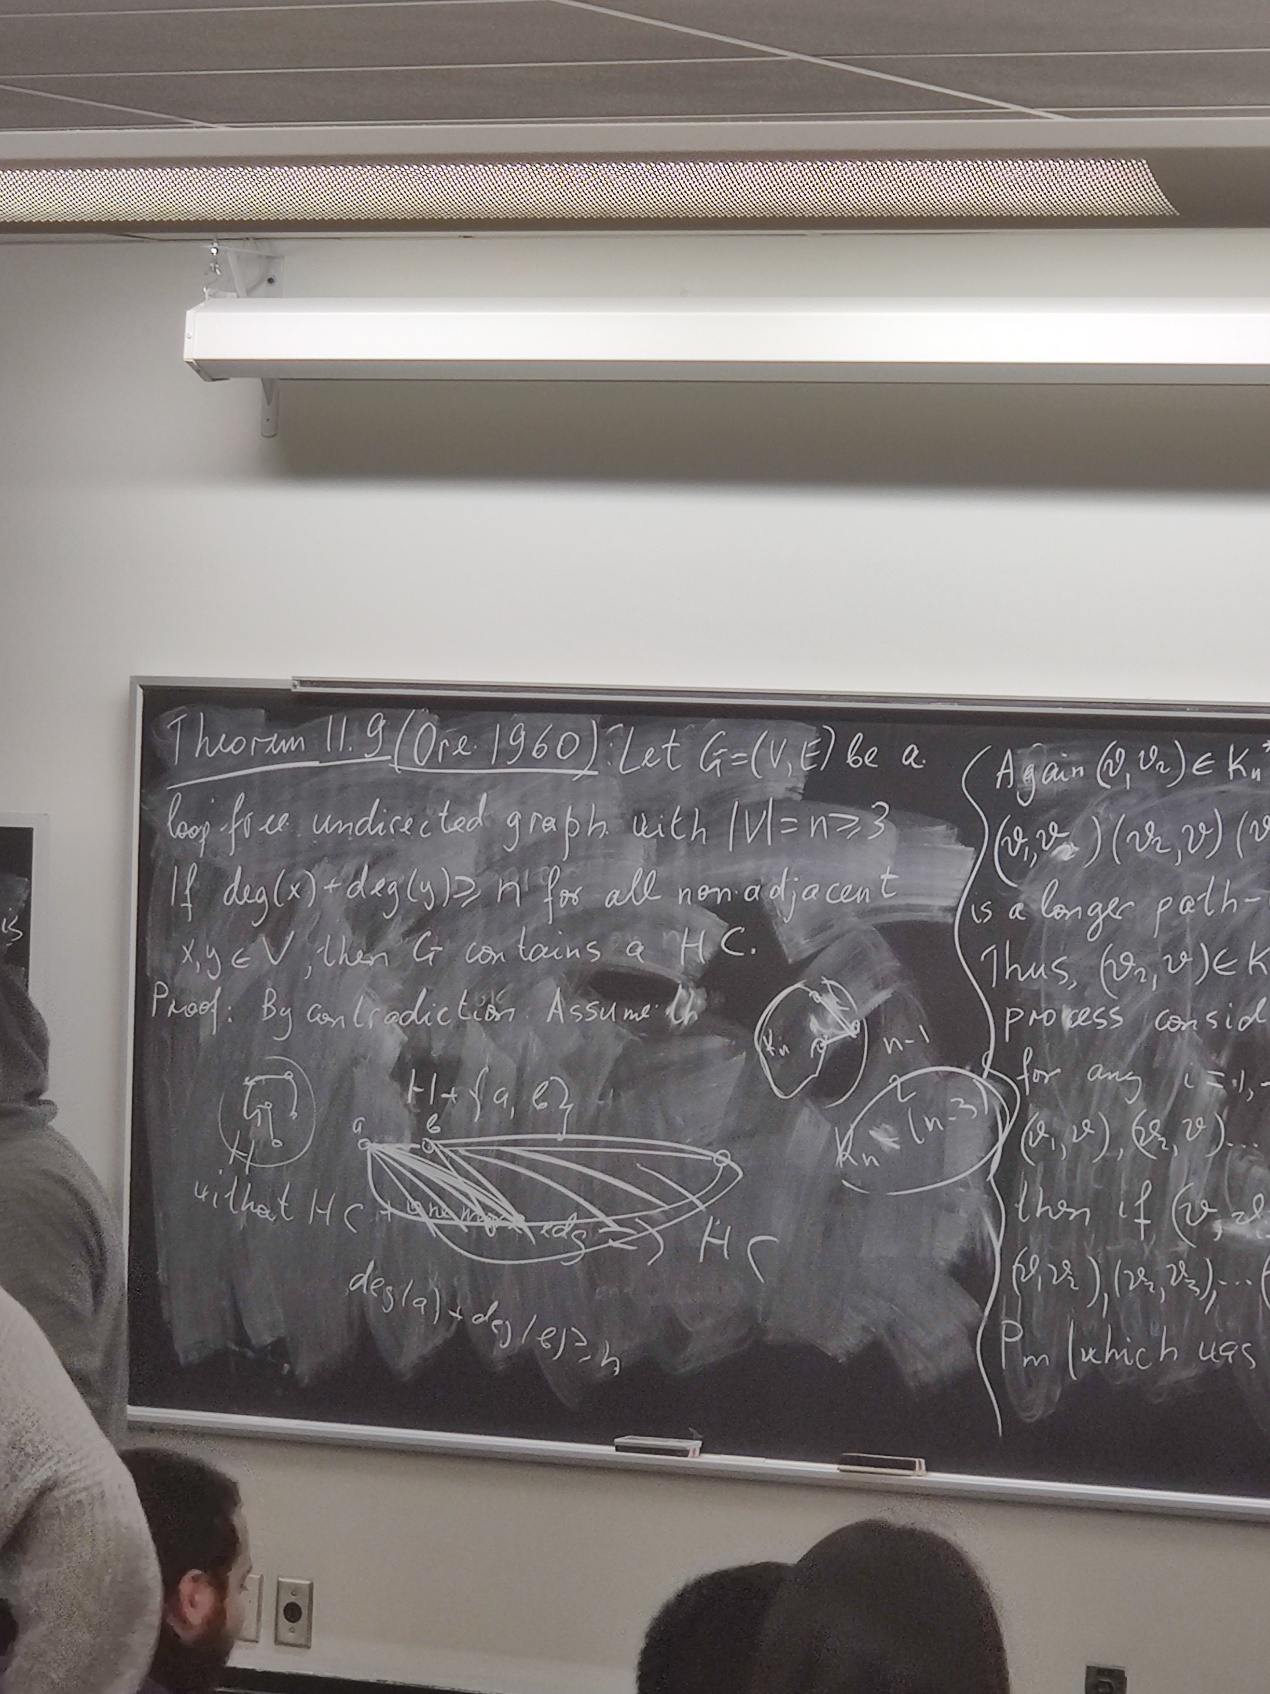 Theorem 11.9 (Ore 1960): Let G=(V,E) be a
loop-free undirected graph with |V|=n≥3
If deg(x)+deg(y)≥n for all nonadjacent
x,y∈V, then G contains a HC.
Proof: By contradiction. Assume
Kn
n-1
H+{a,b}
a b
H
Kn-(n-3)
without HC + one more edg ⇒ HC
deg(a)+deg(b)≥n
Again (v,v₂)∈Kn*
(v₁,v₂)(v₂,v)(v
is a longer path-
Thus, (v₂,v)∈K
process consid
for any i=1,-
(v₁,v),(v₂,v)...
then if (v,v
(v,v₂),(v₂,v₃),...(
Pm (which was
is